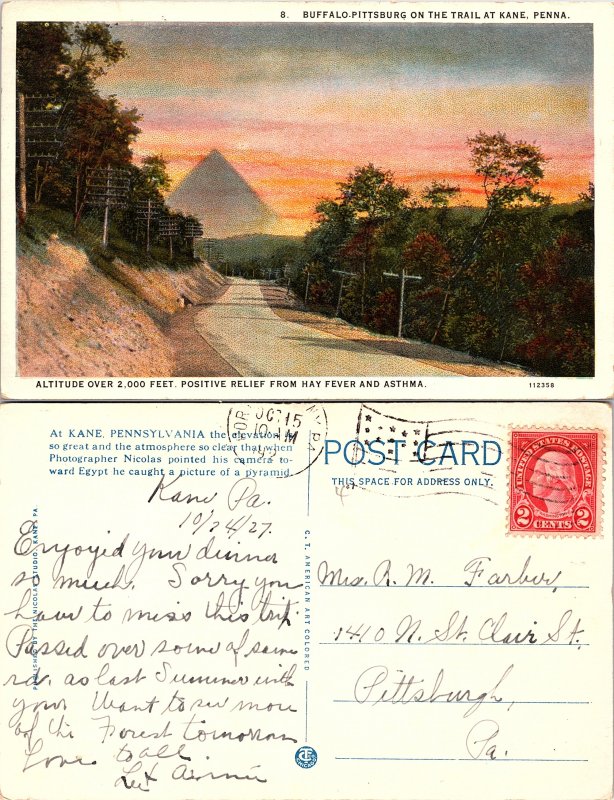 8. BUFFALO-PITTSBURG ON THE TRAIL AT KANE, PENNA.
ALTITUDE OVER 2,000 FEET. POSITIVE RELIEF FROM HAY FEVER AND ASTHMA.
112358
At KANE, PENNSYLVANIA the elevation is
so great and the atmosphere so clear that when
Photographer Nicolas pointed his camera to-
ward Egypt he caught a picture of a pyramid.
Kane Pa.
10/24/27.
Enjoyed your dinner
so much. Sorry you
have to miss this trip.
Passed over some of same
rd. as last Summer with
you. Want to see more
of the Forest tomorrow
Love to all
PUBLISHED BY THE NICOLAS STUDIO, KANE, PA.
C. T. AMERICAN ART COLORED
POST CARD
THIS SPACE FOR ADDRESS ONLY.
OCT 15
10 AM
PA.
UNITED STATES POSTAGE
2 CENTS 2
Mrs. R. M. Farber,
1410 N. St. Clair St.
Pittsburgh,
Pa.